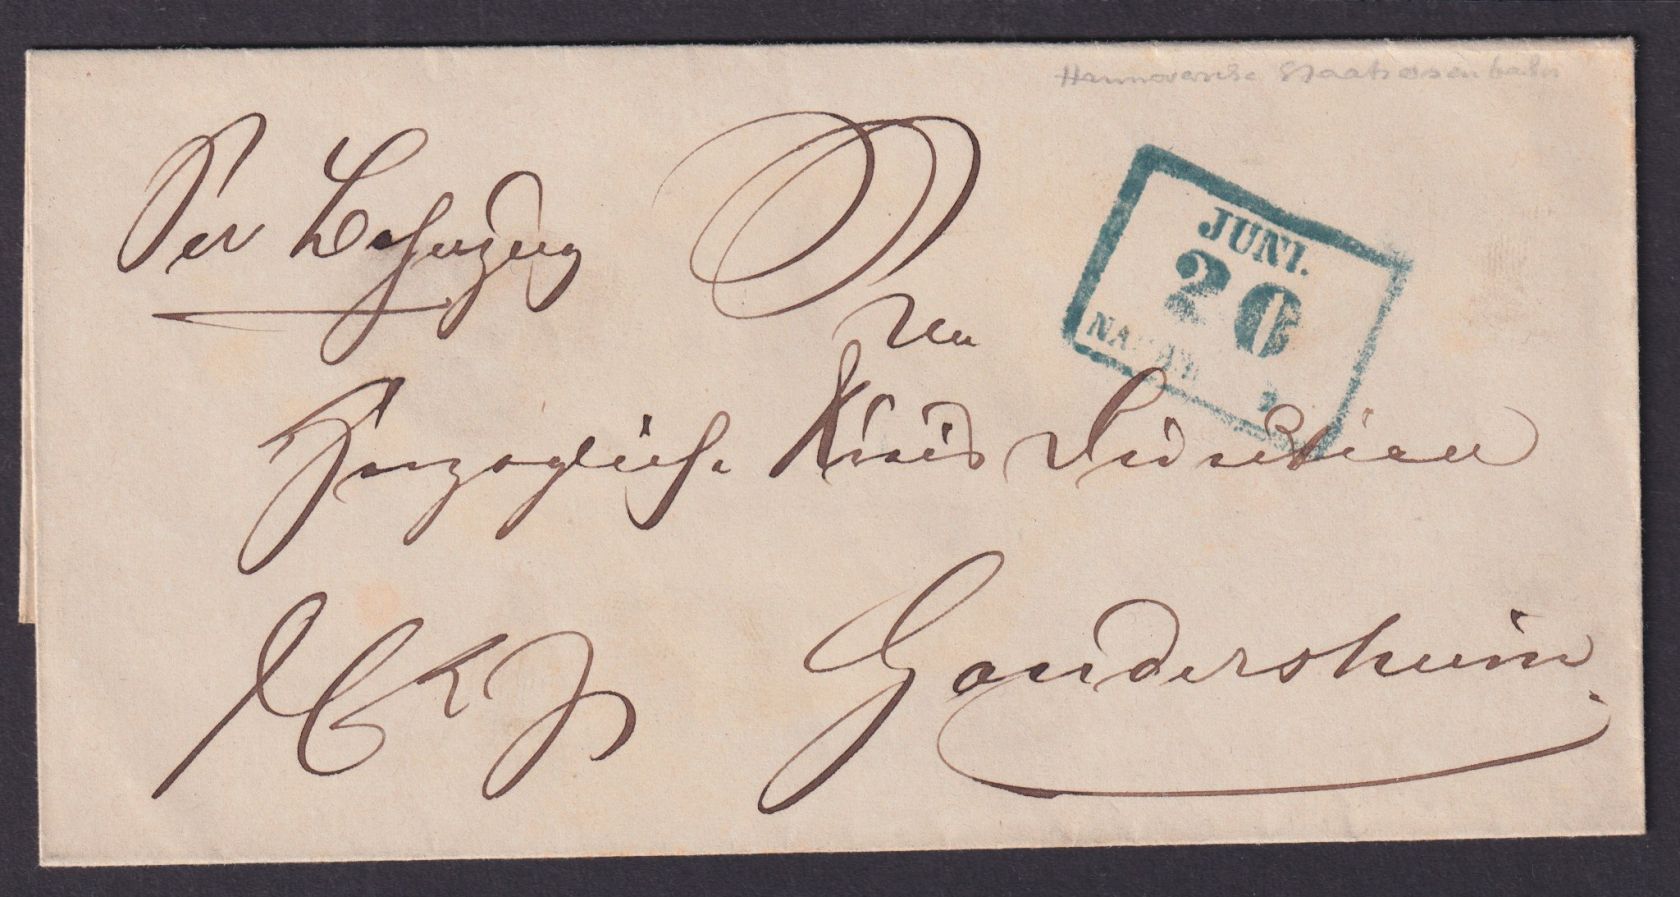 Hannoversche Staatseisenbahn
Per Bahnzug
JUNI.
26
NACHM
Herzogliche Kreis Direction
Gandersheim.